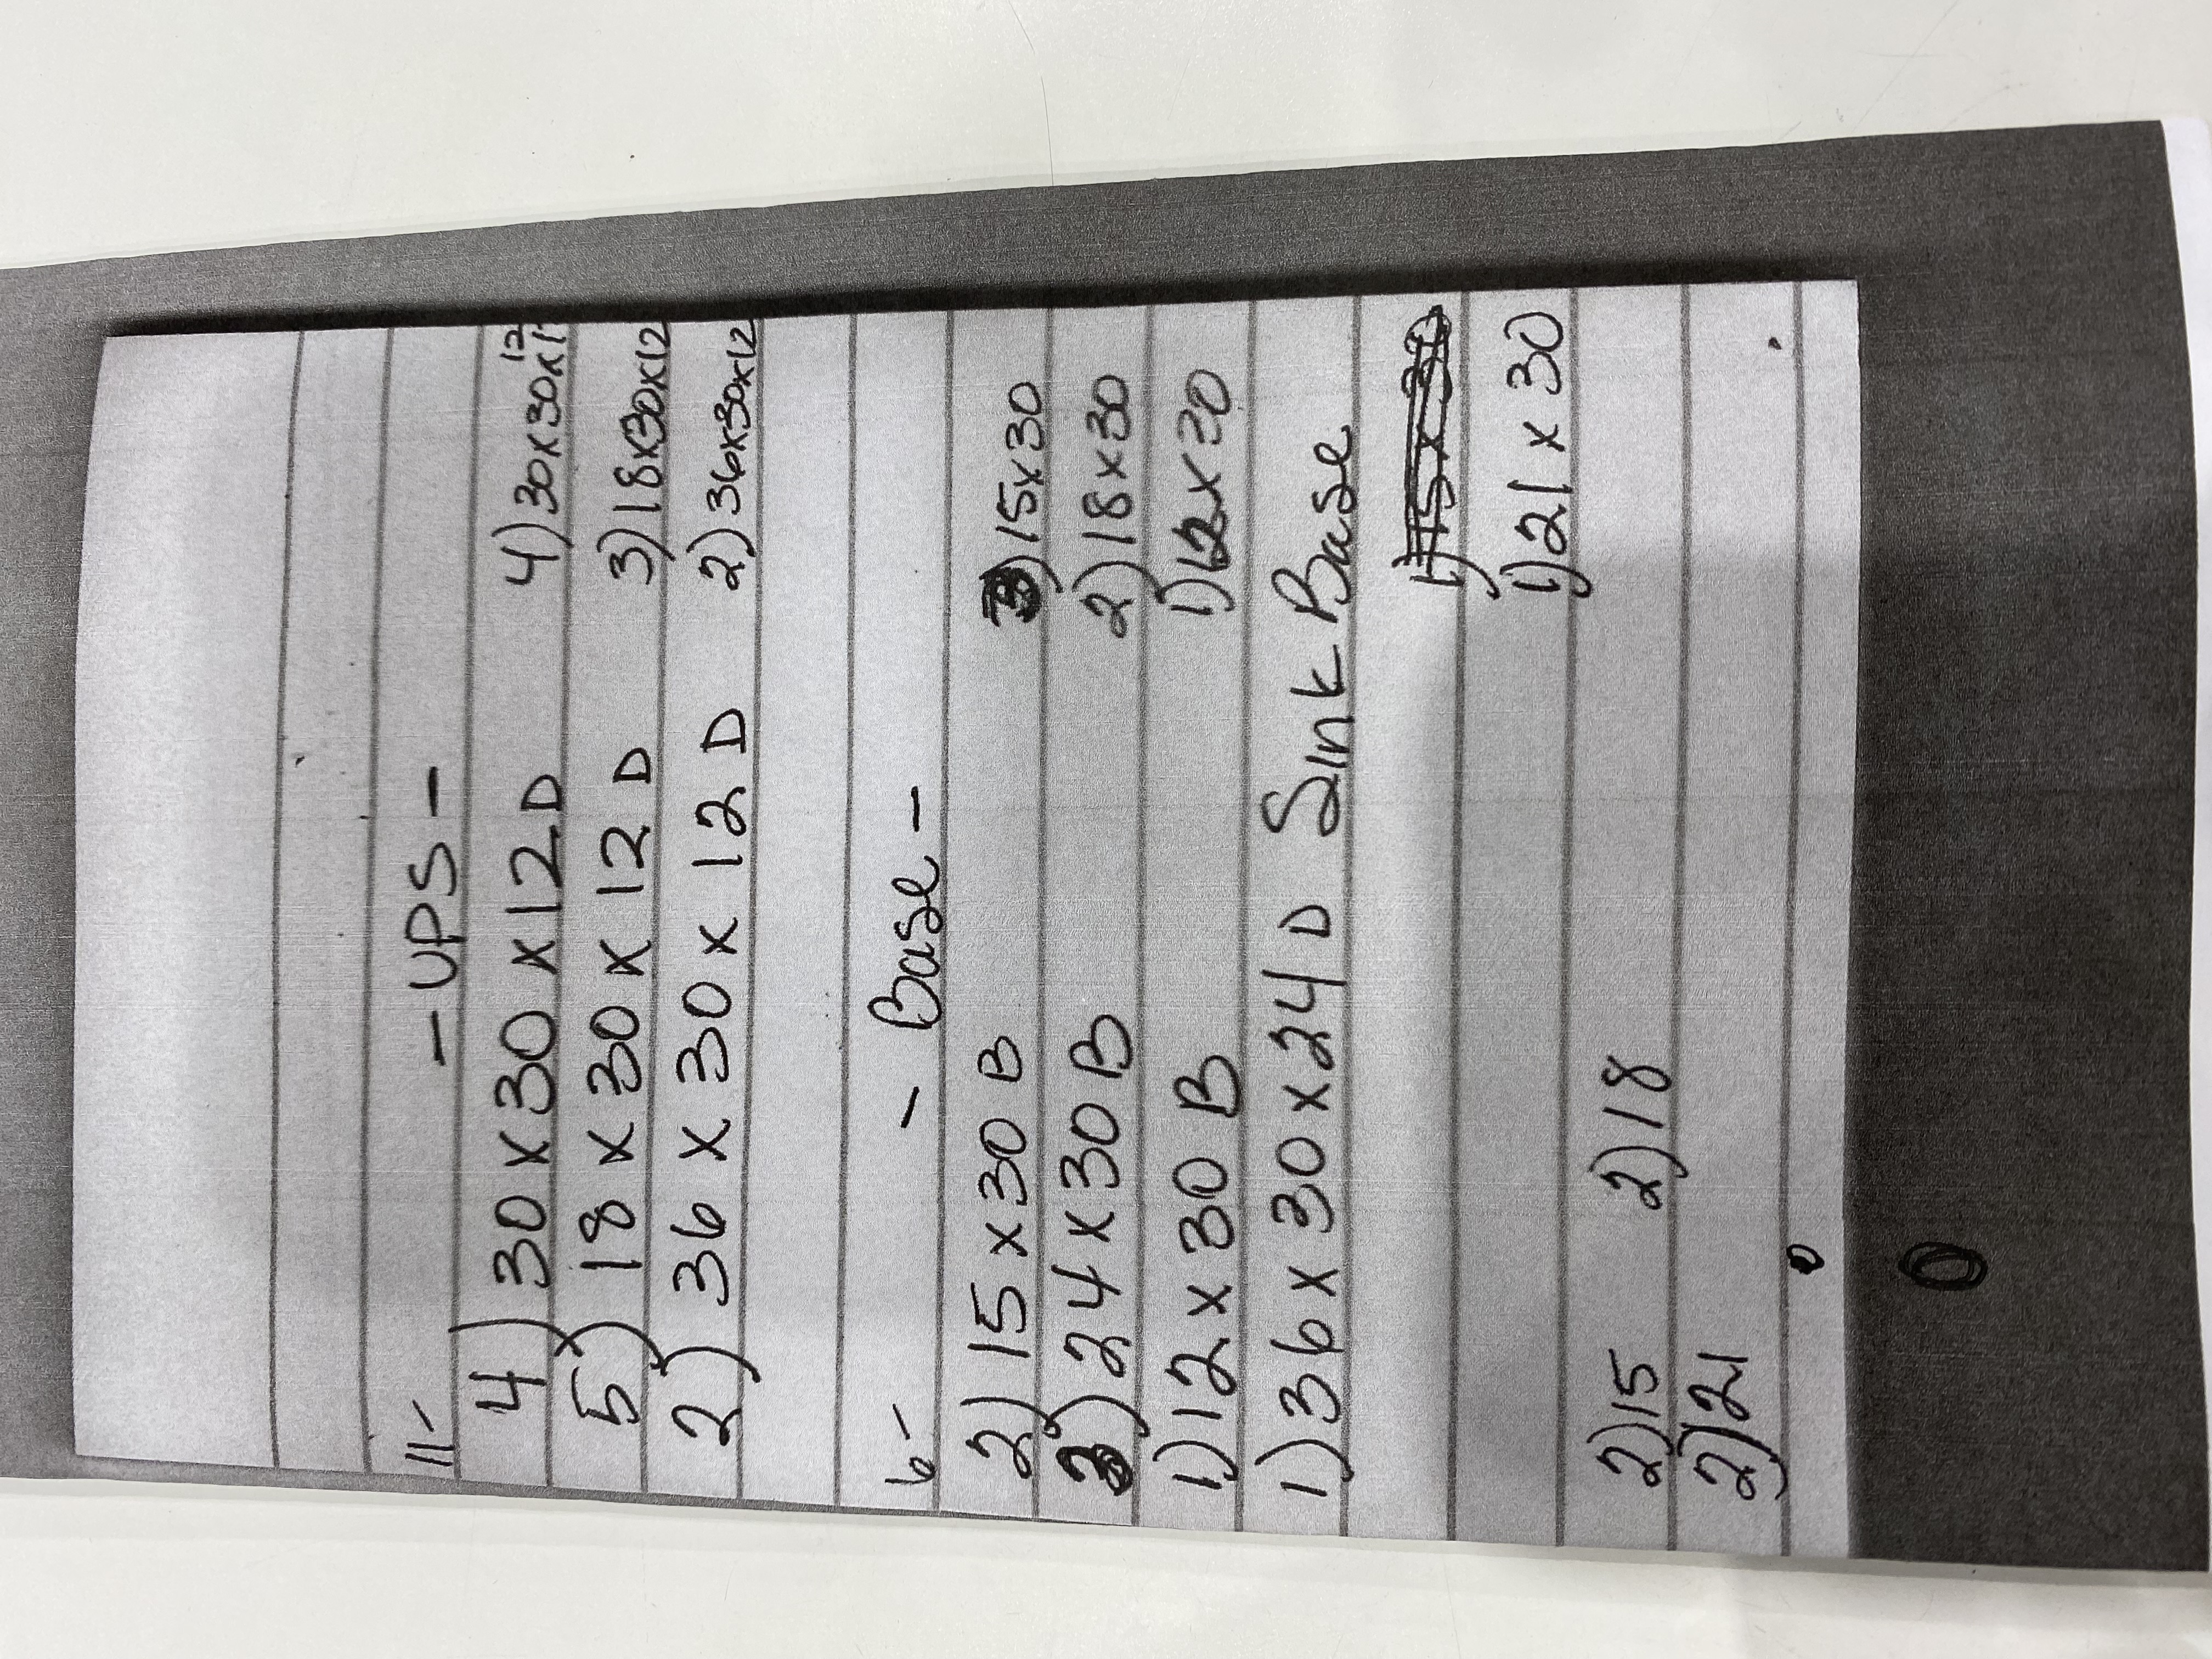 - UPS -
11-
4) 30 x 30 x 12 D 4) 30x30x12
5) 18 x 30 x 12 D 3) 18x30x12
2) 36 x 30 x 12 D 2) 36x30x12
6- - Base -
2) 15 x 30 B 3) 15x30
3) 24 x 30 B 2) 18x30
1) 12 x 30 B 1) 12x30
1) 36 x 30 x 24 D Sink Base
1) 21 x 30
2) 15 2) 18
2) 21